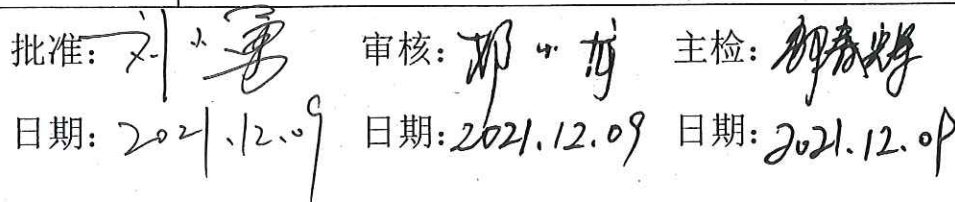 批准：刘小勇 审核：邓小龙 主检：郭春辉
日期：2021.12.09 日期：2021.12.09 日期：2021.12.09